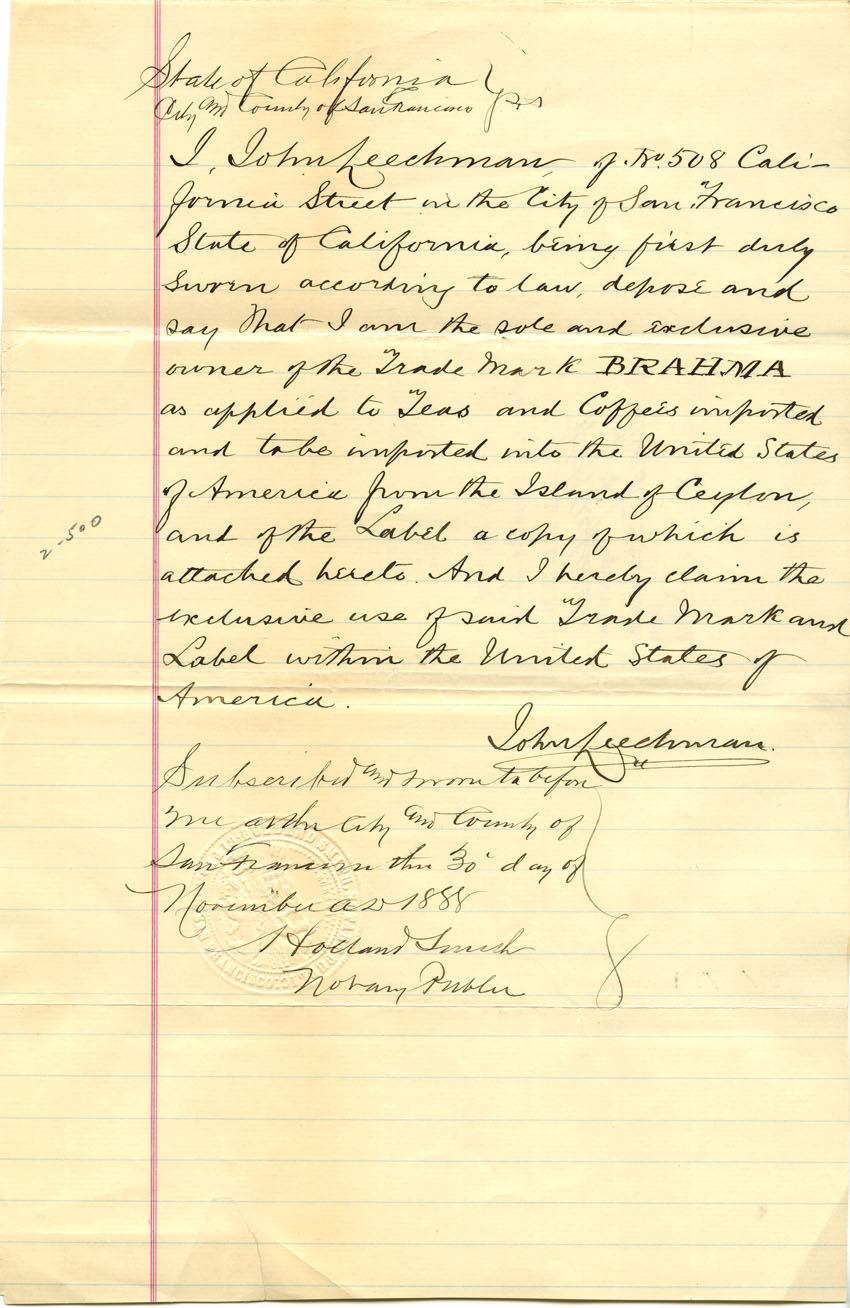 State of California
City and County of San Francisco } ss
I, John Leechman, of No. 508 Cali-
fornia Street in the City of San Francisco
State of California, being first duly
sworn according to law, depose and
say that I am the sole and exclusive
owner of the Trade Mark BRAHMA
as applied to Teas and Coffees imported
and to be imported into the United States
of America from the Island of Ceylon,
and of the Label a copy of which is
attached hereto. And I hereby claim the
exclusive use of said Trade Mark and
Label within the United States of
America.
2-500
John Leechman.
Subscribed and sworn to before
me at the City and County of
San Francisco this 30 day of
November AD 1888
Holland Smith
Notary Public